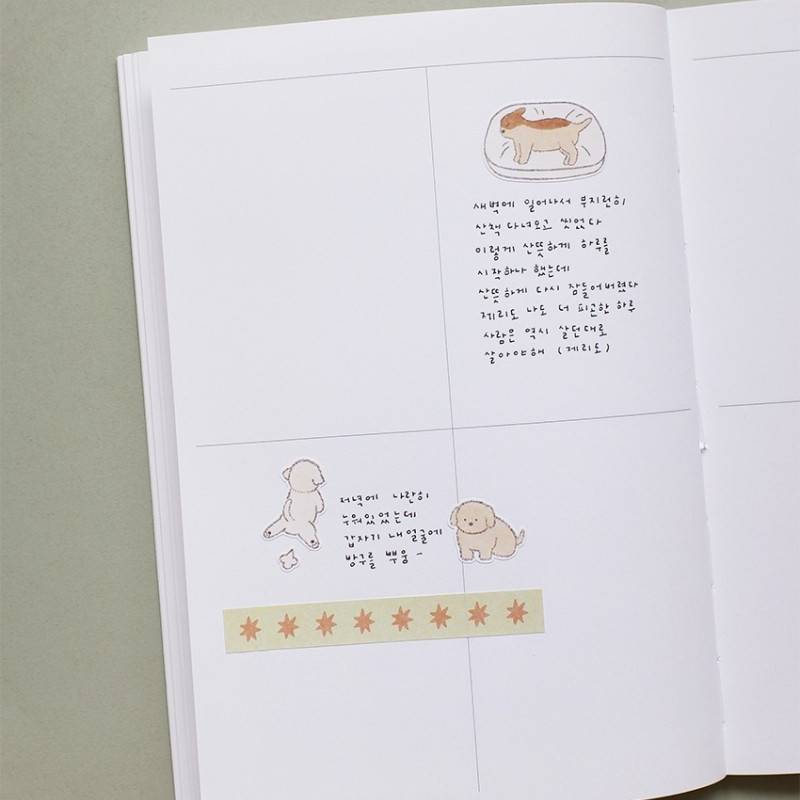 새벽에 일어나서 부지런히
산책 다녀오고 씻었다
이렇게 산뜻하게 하루를
시작하나 했는데
산뜻하게 다시 잠들어버렸다
제리도 나도 너 피곤한 하루
사람은 역시 살던대로
살아야해 (제리도)
저녁에 나란히
누워있었는데
갑자기 내얼굴에
방구를 뿌웅~